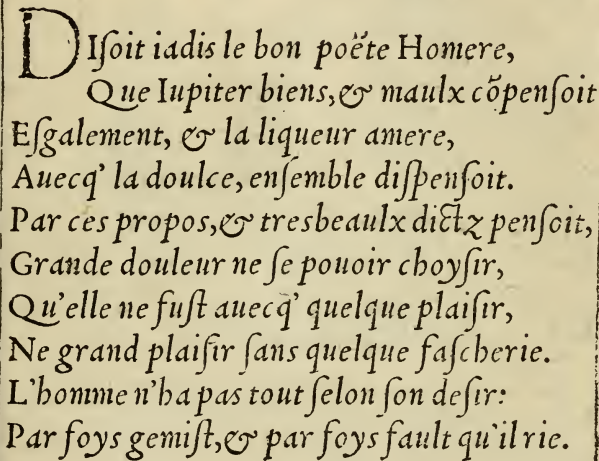 DIſoit iadis le bon poëte Homere,
Que Iupiter biens, & maulx cõpenſoit
Eſgalement, & la liqueur amere,
Auecq' la doulce, enſemble diſpenſoit.
Par ces propos, & tresbeaulx dictz penſoit,
Grande douleur ne ſe pouoir choyſir,
Qu'elle ne fuſt auecq' quelque plaiſir,
Ne grand plaiſir ſans quelque faſcherie.
L'homme n'ha pas tout ſelon ſon deſir:
Par foys gemiſt, & par foys fault qu'il rie.